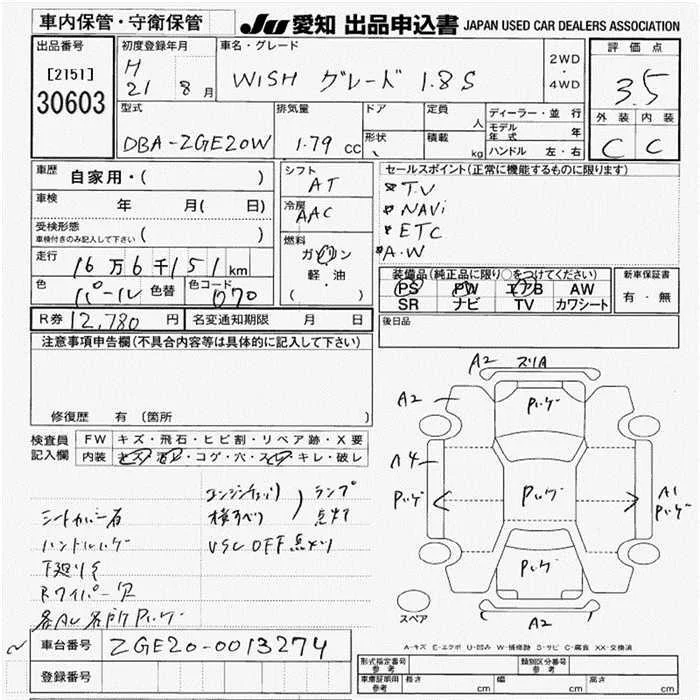 車内保管・守衛保管
JU 愛知 出品申込書 JAPAN USED CAR DEALERS ASSOCIATION
出品番号
[2151]
30603
初度登録年月
H
21 8 月
車名・グレード
WISH グレード 1.8S
2WD
・
4WD
評価点
3.5
外装 内装
C C
型式
DBA-ZGE20W
排気量
1.79 CC
ドア
形状
定員
人
積載
kg
ディーラー・並 行
モデル年式 年
ハンドル 左・右
車歴
自家用・( )
車検
年 月( 日)
受検形態
車検付きのみ記入して下さい ( )
走行
16万6千151km
色
パール
色替
色コード
070
シフト
AT
冷房
AAC
燃料
ガソリン
軽・油
( )
セールスポイント(正常に機能するものに限ります)
TV
NAVi
ETC
A.W
装備品(純正品に限り○をつけてください)
PS PW エアB AW
SR ナビ TV カワシート
新車保証書
有・無
R券 12,780 円
名変通知期限 月 日
後日品
注意事項申告欄(不具合内容等は具体的に記入して下さい)
修復歴 有 (箇所 )
検査員
記入欄
FW キズ・飛石・ヒビ割・リペア跡・X要
内装 キズ・汚レ・コゲ・穴・スレ・キレ・破レ
エンジンチェック
横すべり
ランプ
点灯
VSC OFF点メツ
シートカバー有
ハンドルハゲ
下廻りS
Rワイパー欠
各AL各所Pハゲ
A2 ズリA
A2
Pハゲ
A4
Pハゲ
Pハゲ
A1
Pハゲ
Pハゲ
A2
スペア
A-キズ E-エクボ U-凹み W-補修跡 S-サビ C-腐食 XX-交換済
車台番号 ZGE20-0013274
登録番号
形式指定番号
参考
類別区分番号
参考
車庫証明用
参考
長さ cm 幅 cm 高さ cm